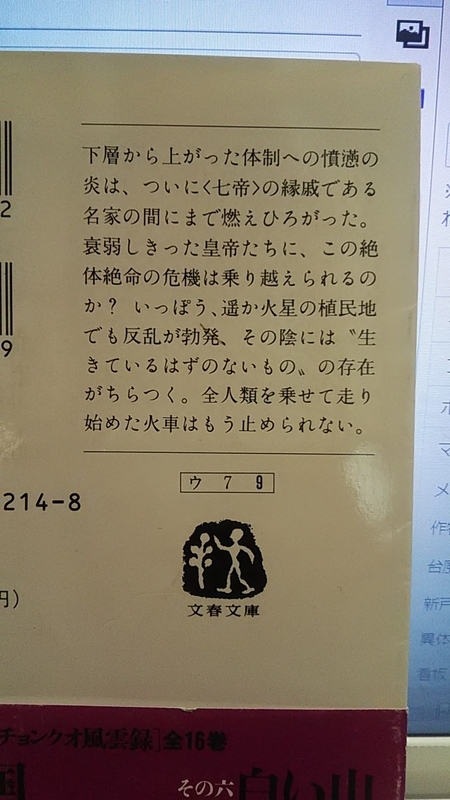 下層から上がった体制への憤懣の
炎は、ついに〈七帝〉の縁戚である
名家の間にまで燃えひろがった。
衰弱しきった皇帝たちに、この絶
体絶命の危機は乗り越えられるの
か? いっぽう、遥か火星の植民地
でも反乱が勃発、その陰には〝生
きているはずのないもの〟の存在
がちらつく。全人類を乗せて走り
始めた火車はもう止められない。
2
9
ウ 7 9
214-8
文春文庫
円)
チョンクオ風雲録]全16巻
その六 白い山
国
作
台風
新戸
異体
看板